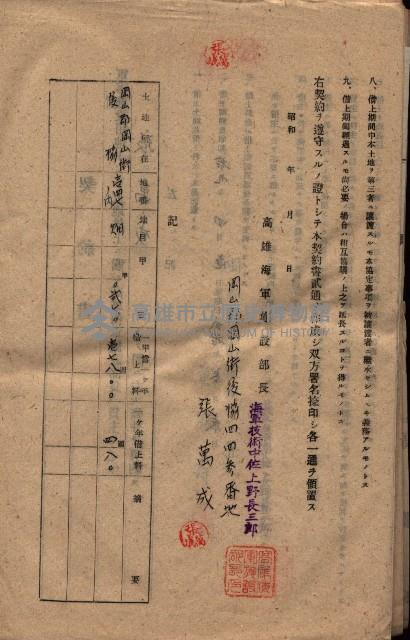 八、借上期間中本土地ヲ第三者ニ讓渡スルモ本協定事項ヲ讓渡者ニ繼承セシムヘキ義務アルモノトス
九、借上期間經過スルモ尚必要ノ場合ハ相互協議ノ上之ヲ延長スルコトヲ得ルモノトス
右契約ヲ遵守スルノ證トシテ本契約書貳通ヲ作成シ双方署名捺印シ各一通ヲ領置ス
昭和 年 月 日
高雄海軍建設部長
海軍技術中佐上野長三郎
岡山郡岡山街後協四四參番地
張萬成
記
土地所在 地番 地目 甲 一甲當一ケ年借上料 一ケ年借上料 摘要
岡山郡岡山街後協 內 畑
高雄市立歷史博物館
MUSEUM OF HISTORY